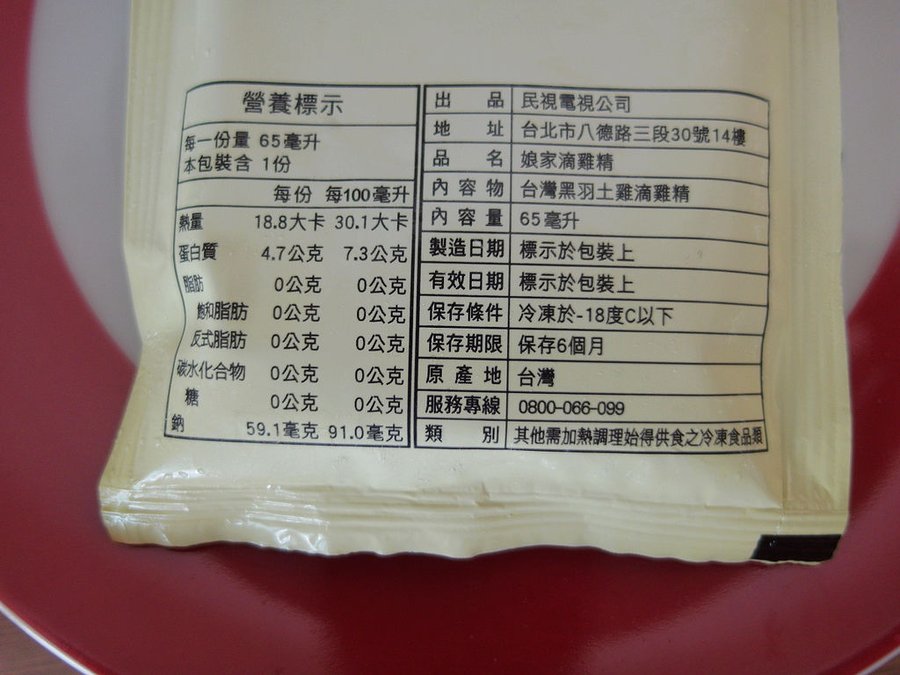 營養標示
每一份量 65毫升
本包裝含 1份
每份 每100毫升
熱量 18.8大卡 30.1大卡
蛋白質 4.7公克 7.3公克
脂肪 0公克 0公克
飽和脂肪 0公克 0公克
反式脂肪 0公克 0公克
碳水化合物 0公克 0公克
糖 0公克 0公克
鈉 59.1毫克 91.0毫克
出品 民視電視公司
地址 台北市八德路三段30號14樓
品名 娘家滴雞精
內容物 台灣黑羽土雞滴雞精
內容量 65毫升
製造日期 標示於包裝上
有效日期 標示於包裝上
保存條件 冷凍於-18度C以下
保存期限 保存6個月
原產地 台灣
服務專線 0800-066-099
類別 其他需加熱調理始得供食之冷凍食品類